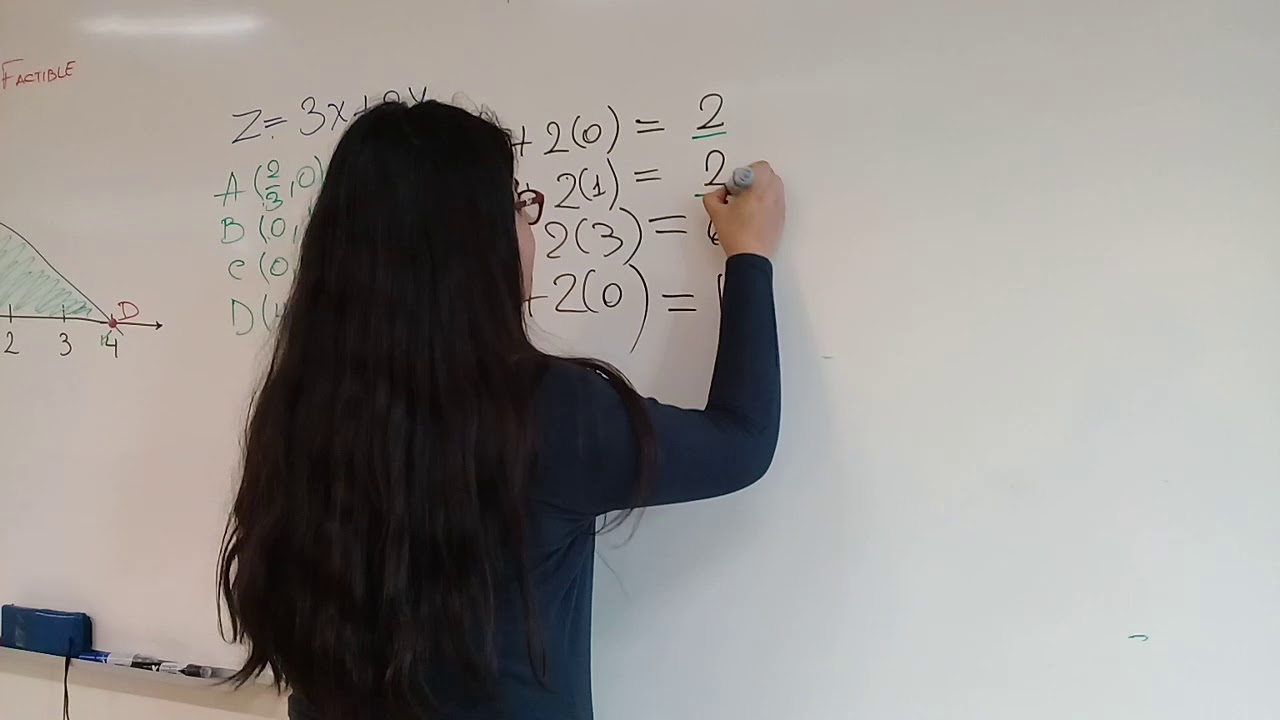 FACTIBLE
Z = 3x +
+ 2(0) = 2
A (2/3, 0)
2(1) = 2
B (0,
2(3) =
C (0
+ 2(0) =
D (
D
2 3 4